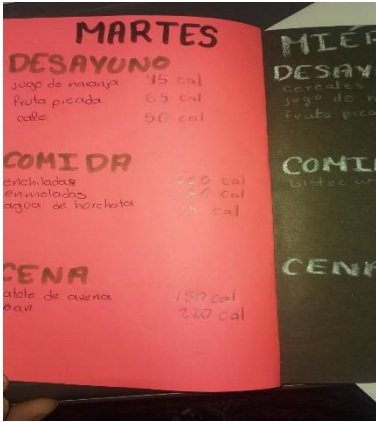 MARTES
DESAYUNO
jugo de naranja 45 cal
fruta picada 65 cal
cafe 50 cal
COMIDA
enchiladas cal
enmoladas cal
agua de horchata cal
CENA
atole de avena 180 cal
pan 220 cal
MIÉR
DESAY
cereales
jugo de n
fruta pica
COMI
CENA